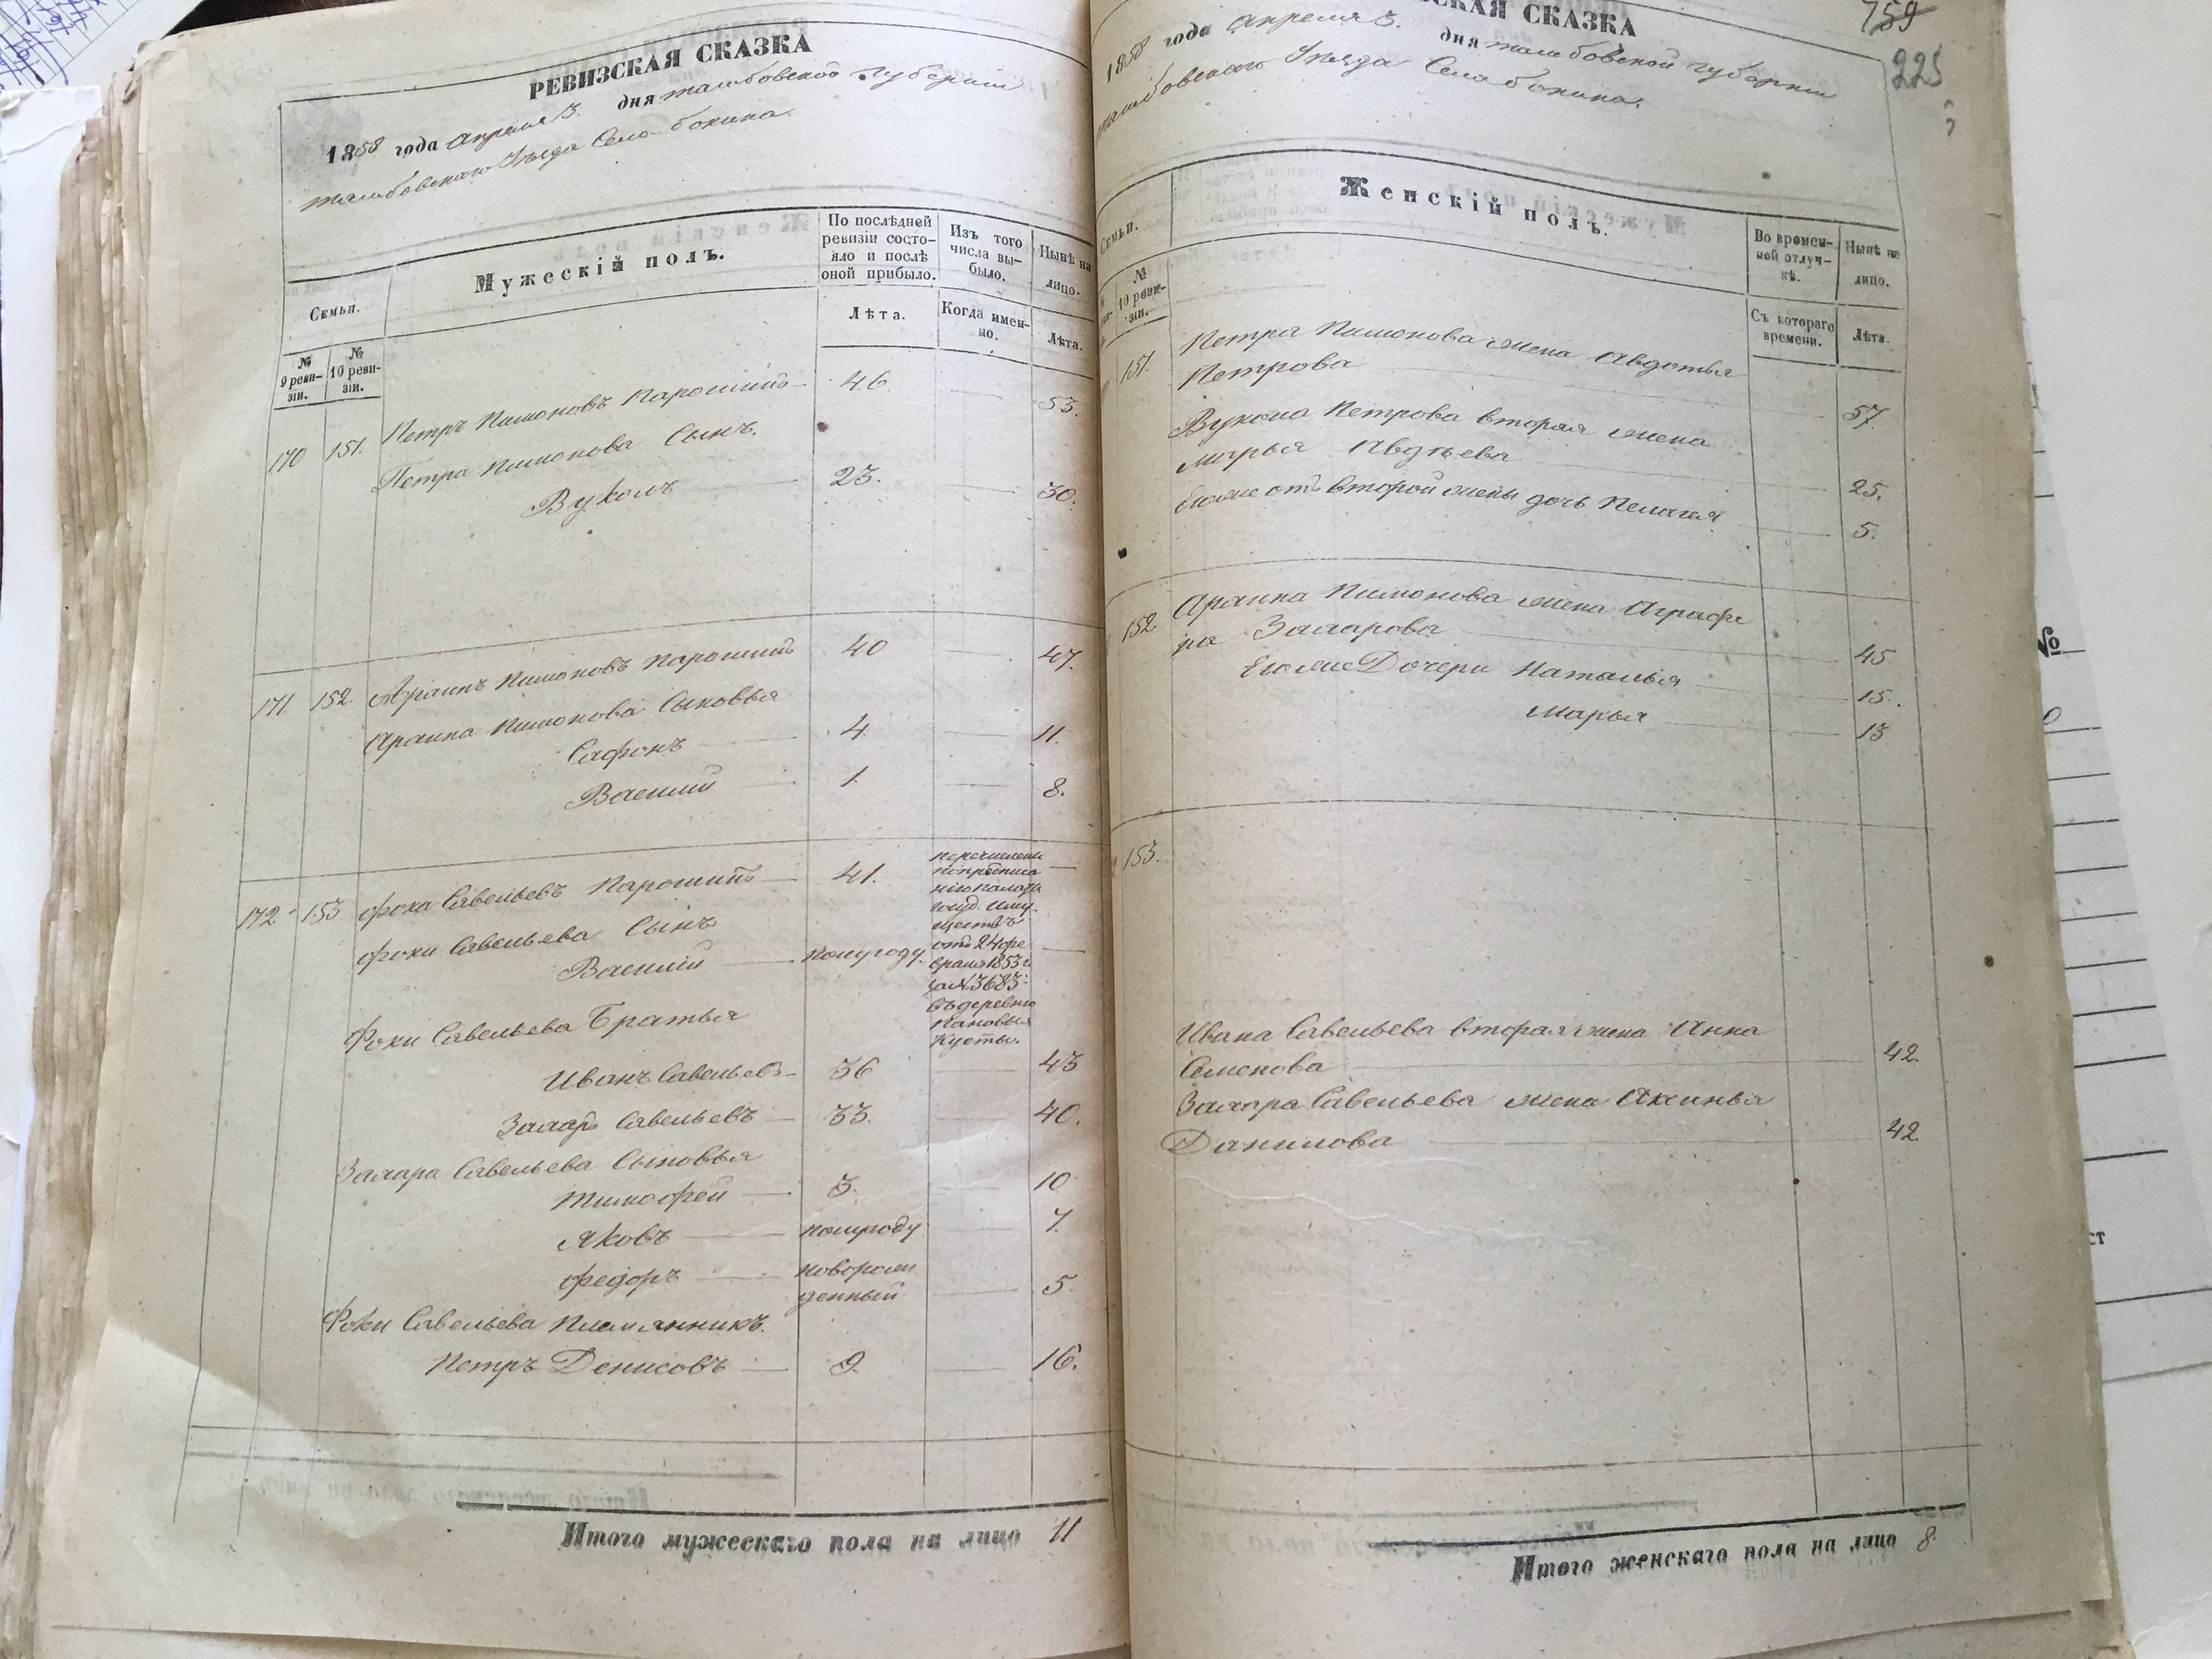 РЕВИЗСКАЯ СКАЗКА
1858 года апреля 3. дня тамбовской губернии
тамбовскаго Уѣзда Село бокина.
Семьи.
Мужескій полъ.
По послѣдней ревизіи состояло и послѣ оной прибыло.
Изъ того числа выбыло.
Нынѣ на лицо.
№ 9 ревизіи.
№ 10 ревизіи.
Лѣта.
Когда именно.
Лѣта.
170 151. Петръ Пимоновъ Парошинъ 46 53.
Петра Пимонова Сынъ.
Вуколъ 23. 30.
171 152. Архипъ Пимоновъ Парошинъ 40 47.
Архипа Пимонова Сыновья
Сафонъ 4 11.
Василий 1. 8.
172 153 фока Савельевъ Парошинъ 41.
фоки Савельева Сынъ
Василий полугоду
перечислены
по предписа
нію палаты
госуд. Иму
ществъ
отъ 24 фе
враля 1853 г
за № 3683
въ деревню
Пановы
Кусты.
Фоки Савельева Братья
Иванъ Савельевъ 36 43
Захаръ Савельевъ 33. 40.
Захара Савельева Сыновья
тимофей 3. 10
Яковъ полугоду 7.
федоръ новорож
денный 5.
Фоки Савельева Племянникъ.
Петръ Денисовъ 9. 16.
Итого мужескаго пола на лицо 11
СКАЯ СКАЗКА
759
225
1858 года апреля 3. дня тамбовской губернии
тамбовскаго Уѣзда Села бокина.
Семьи.
Женскій полъ.
Во временной отлучкѣ.
Нынѣ на лицо.
№ 10 ревизіи.
Съ котораго времени.
Лѣта.
151. Петра Пимонова жена Авдотья
Петрова 57.
Вукола Петрова вторая жена
Марья Авдѣева 25.
Его же отъ второй жены дочь Пелагея 5.
152. Архипа Пимонова жена Аграфе
на Захарова 45
Его же Дочери Наталья 15.
Марья 13
153.
Ивана Савельева вторая жена Анна
Семенова 42.
Захара Савельева жена Аксинья
Данилова 42.
Итого женскаго пола на лицо 8.
№